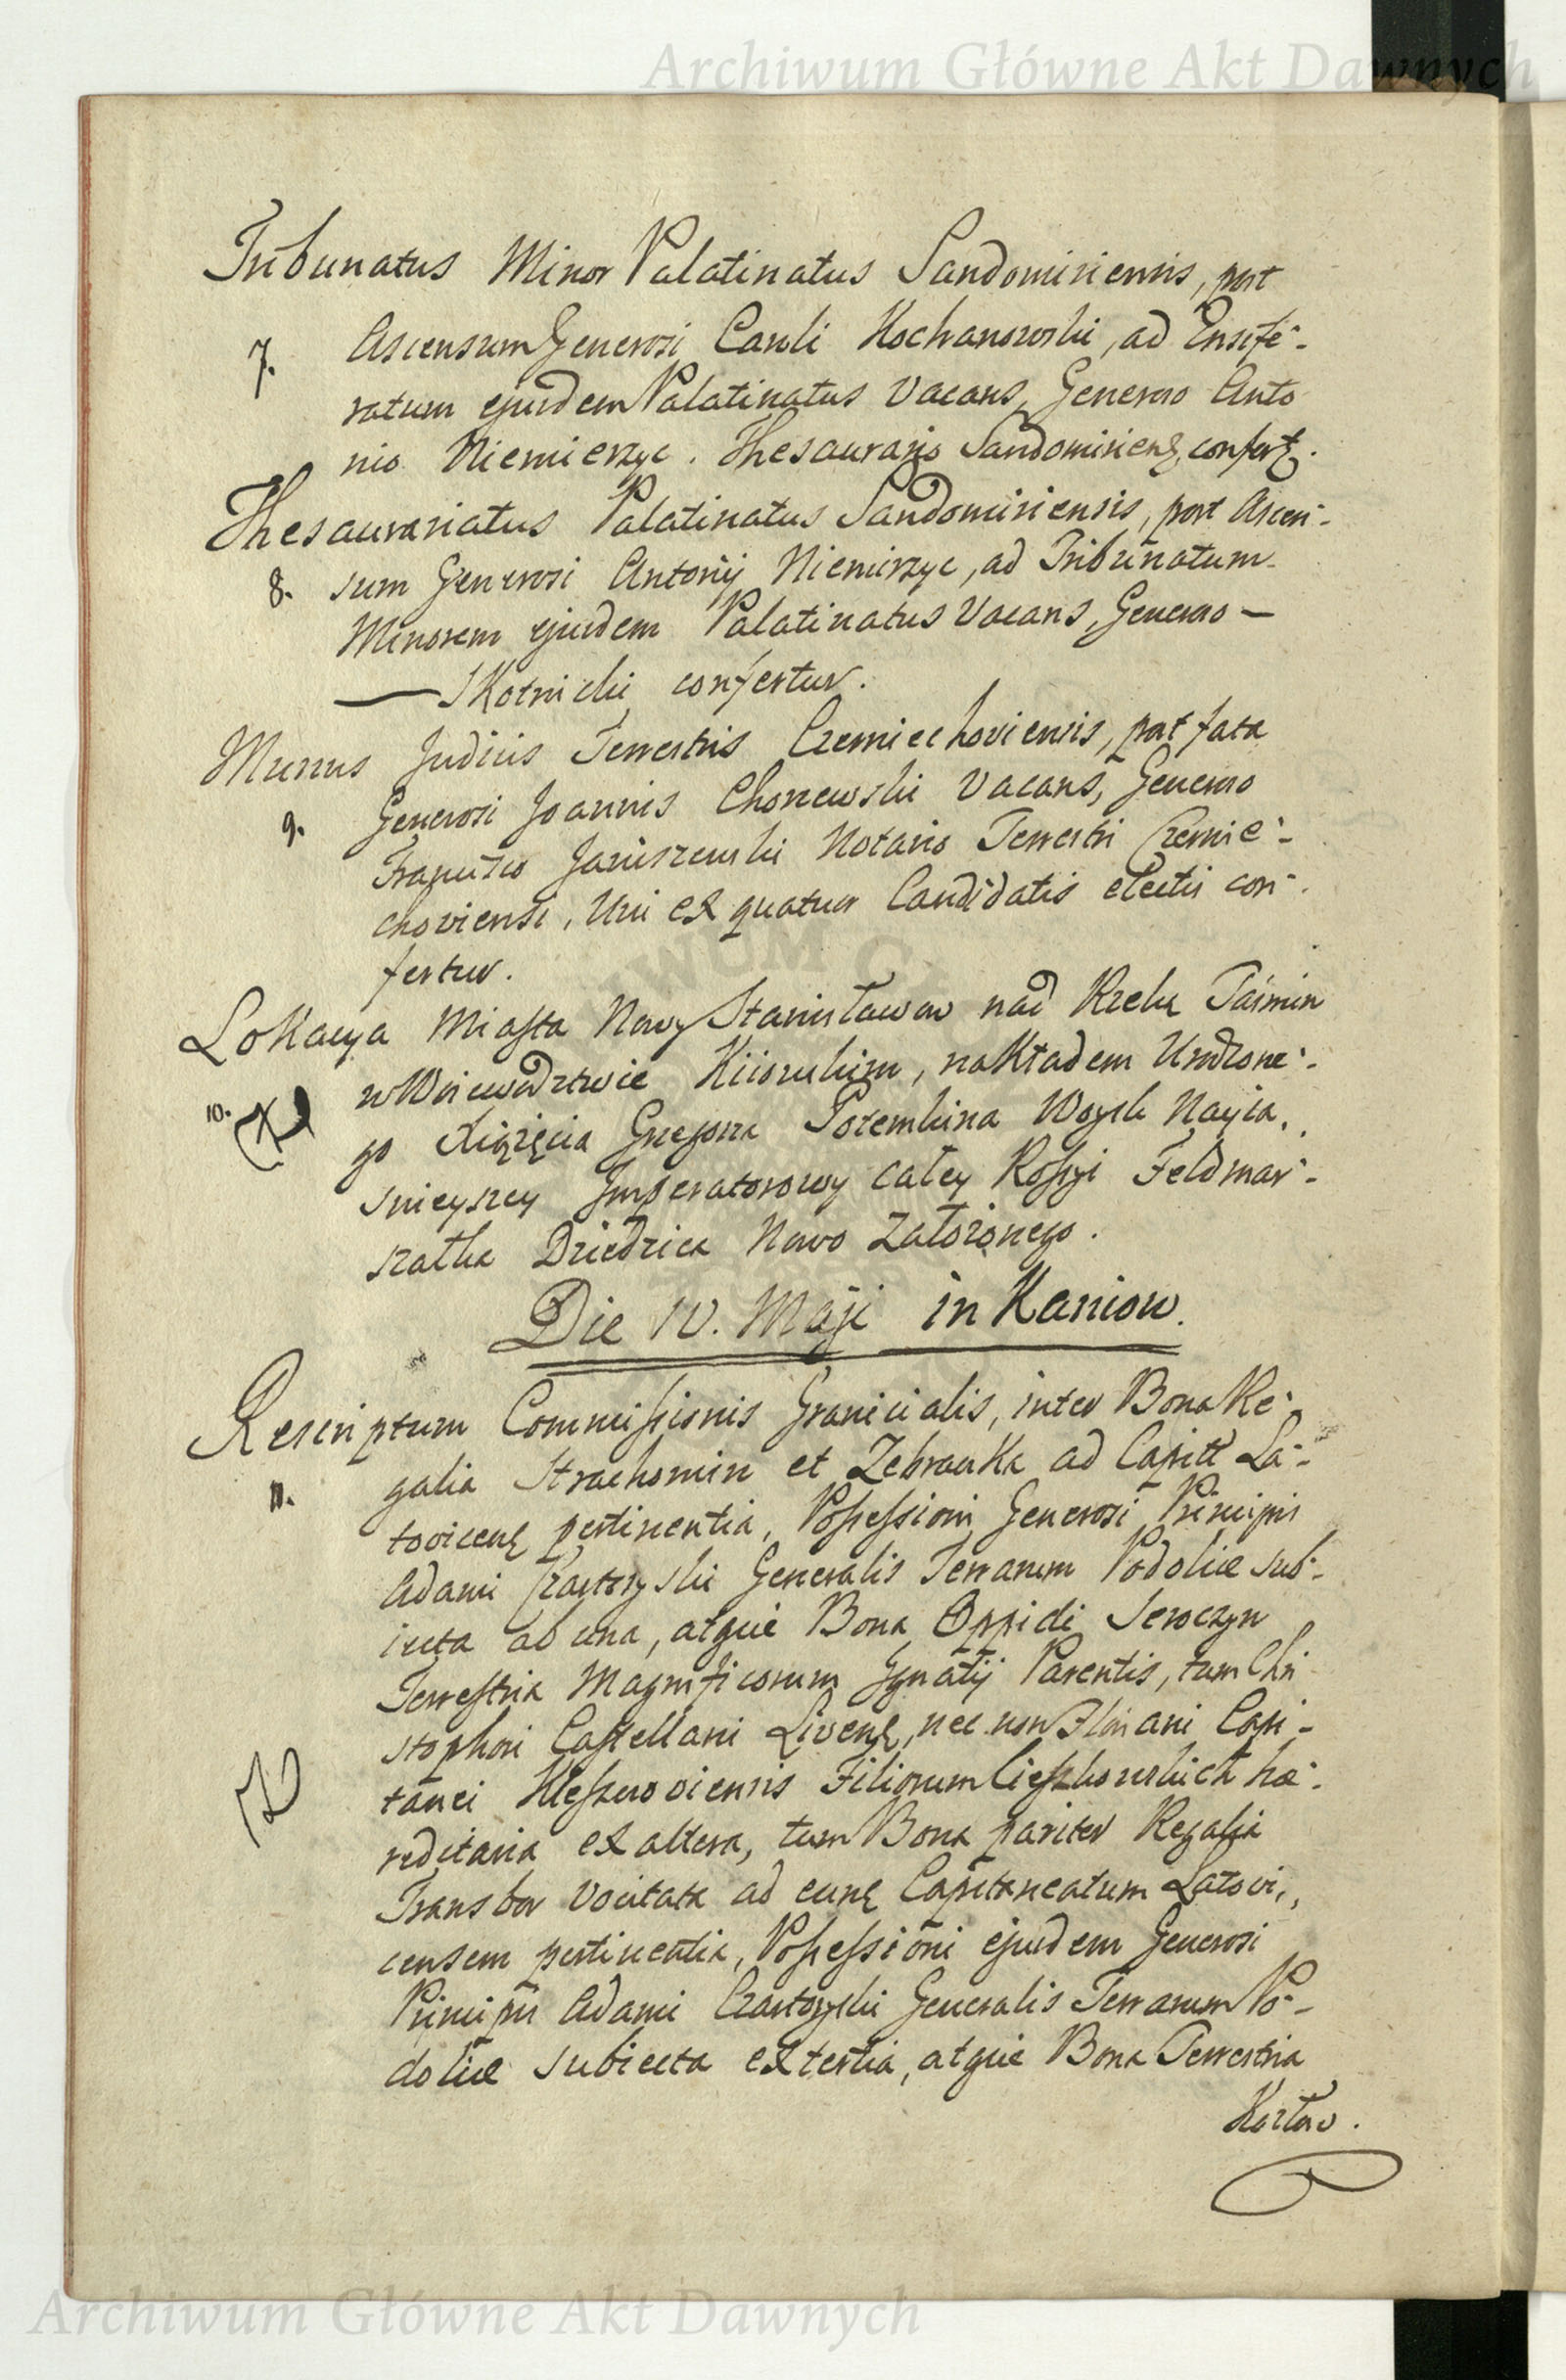 Archiwum Główne Akt Dawnych
Tribunatus Minor Palatinatus Sandomiriensis, post
7. Ascensum Generosi Caroli Kochanowski, ad Ensife-
ratum ejusdem Palatinatus Vacans, Generoso Anto
nio Niemierzyc. Thesaurario Sandomiriens, confert.
Thesaurariatus Palatinatus Sandomiriensis, post Ascen-
8. sum Generosi Antonij Niemirzyc, ad Tribunatum
Minorem ejusdem Palatinatus Vacans, Generoso —
— Skotnicki confertur.
Munus Judicis Terrestris Czerniechoviensis, post fata
9. Generosi Joannis Chorzewski Vacans, Generoso
Januszewski Notario Terrestri Czernie-
choviensi, Uni ex quatuor Candidatis electis con-
fertur.
Lokacya Miasta Nowy Stanisławow nad Rzeką Taśmin
10. w Woiewodztwie Kiiowskim, nakładem Urodzone-
go Xiążęcia Grzegorza Potemkina Woysk Nayia,
snieyszey Imperatorowy całey Rossyi Feldmar-
szałka Dziedzica Nowo Założonego.
Die 10. Maji in Kaniow.
Rescriptum Commissionis Granicialis, inter Bona Re-
11. galia Strachomin et Żebraczka ad Capitt La-
tovicens pertinentia, Possessioni Generosi Principis
Adami Czartoryski Generalis Terrarum Podoliæ sub-
iecta ab una, atque Bona Oppidi Seroczyn
Terrestria Magnificorum Ignatij Parentis, tum Chri
stophori Castellani Livens, nec non Floriani Capi-
tanei Kleszczoviensis Filiorum Cieszkowskich hæ-
reditaria ex altera, tum Bona pariter Regalia
Transbor Vocitata ad eund Capitaneatum Latovi,
censem pertinentia, Possessioni ejusdem Generosi
Principis Adami Czartoryski Generalis Terrarum Po-
doliæ subiecta ex tertia, atque Bona Terrestria
Archiwum Główne Akt Dawnych